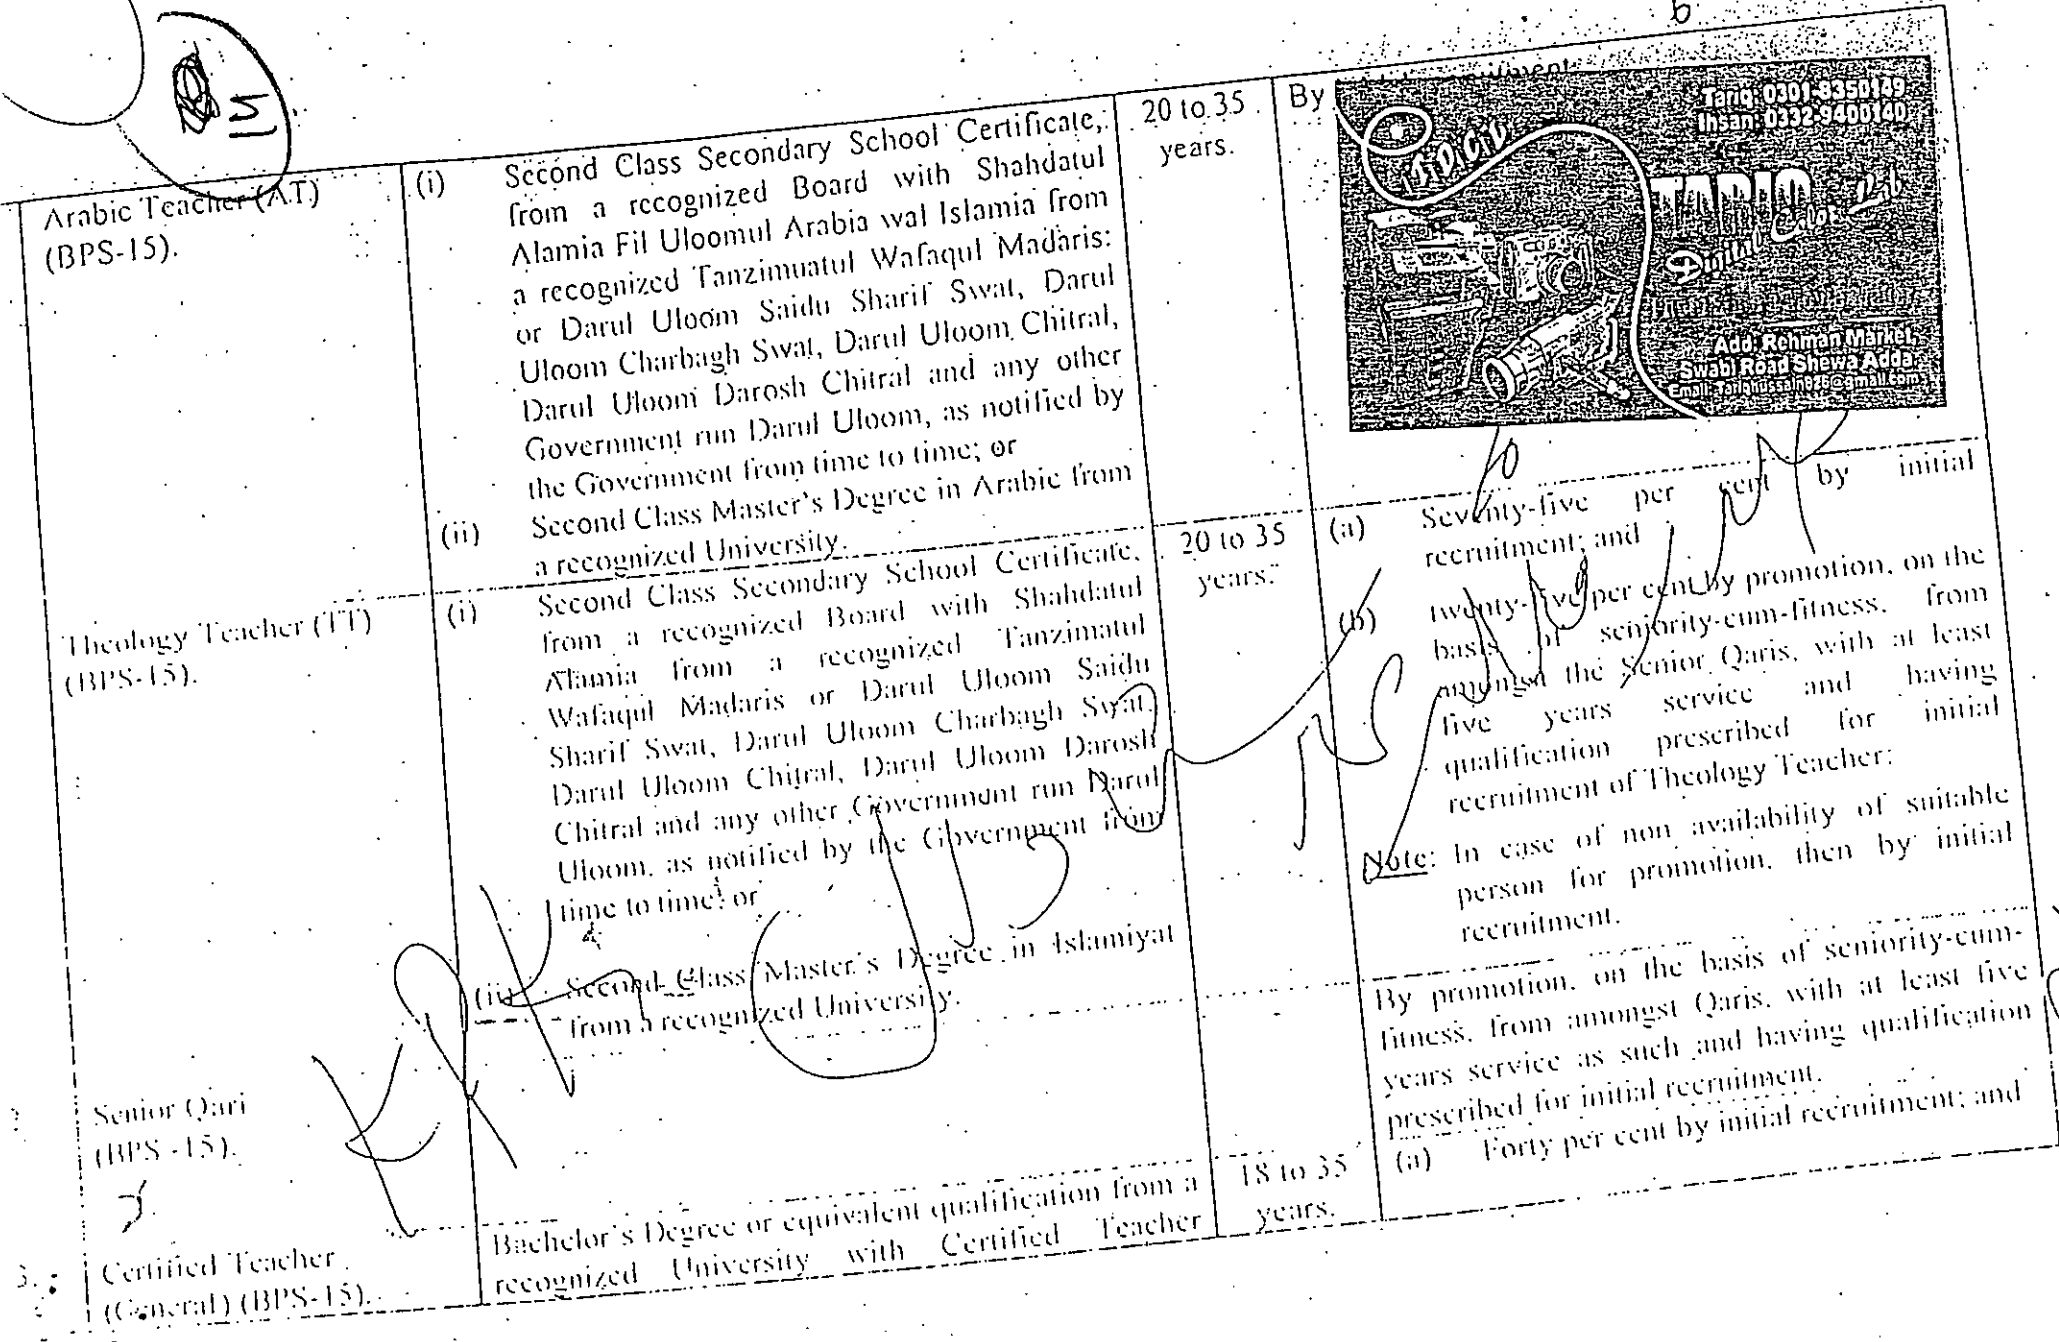 6
5
Arabic Teacher (AT)
(BPS-15).
(i) Second Class Secondary School Certificate,
from a recognized Board with Shahdatul
Alamia Fil Uloomul Arabia wal Islamia from
a recognized Tanzimuatul Wafaqul Madaris:
or Darul Uloom Saidu Sharif Swat, Darul
Uloom Charbagh Swat, Darul Uloom Chitral,
Darul Uloom Darosh Chitral and any other
Government run Darul Uloom, as notified by
the Government from time to time; or
(ii) Second Class Master's Degree in Arabic from
a recognized University.
20 to 35
years.
By
Tariq: 0301-8350149
Ihsan: 0332-9400140
TARIQ
Digital Color Lab
Add: Rehman Market,
Swabi Road Shewa Adda.
Theology Teacher (TT)
(BPS-15).
(i) Second Class Secondary School Certificate,
from a recognized Board with Shahdatul
Alamia from a recognized Tanzimatul
Wafaqul Madaris or Darul Uloom Saidu
Sharif Swat, Darul Uloom Charbagh Swat,
Darul Uloom Chitral, Darul Uloom Darosh
Chitral and any other Government run Darul
Uloom, as notified by the Government from
time to time; or
(ii) Second Class Master's Degree in Islamiyat
from a recognized University.
20 to 35
years.
(a) Seventy-five per cent by initial
recruitment; and
(b) twenty-five per cent by promotion, on the
basis of seniority-cum-fitness, from
amongst the Senior Qaris, with at least
five years service and having
qualification prescribed for initial
recruitment of Theology Teacher:
Note: In case of non availability of suitable
person for promotion, then by initial
recruitment.
Senior Qari
(BPS -15).
By promotion, on the basis of seniority-cum-
fitness, from amongst Qaris, with at least five
years service as such and having qualification
prescribed for initial recruitment.
3. Certified Teacher
(General) (BPS-15).
Bachelor's Degree or equivalent qualification from a
recognized University with Certified Teacher
18 to 35
years.
(a) Forty per cent by initial recruitment; and